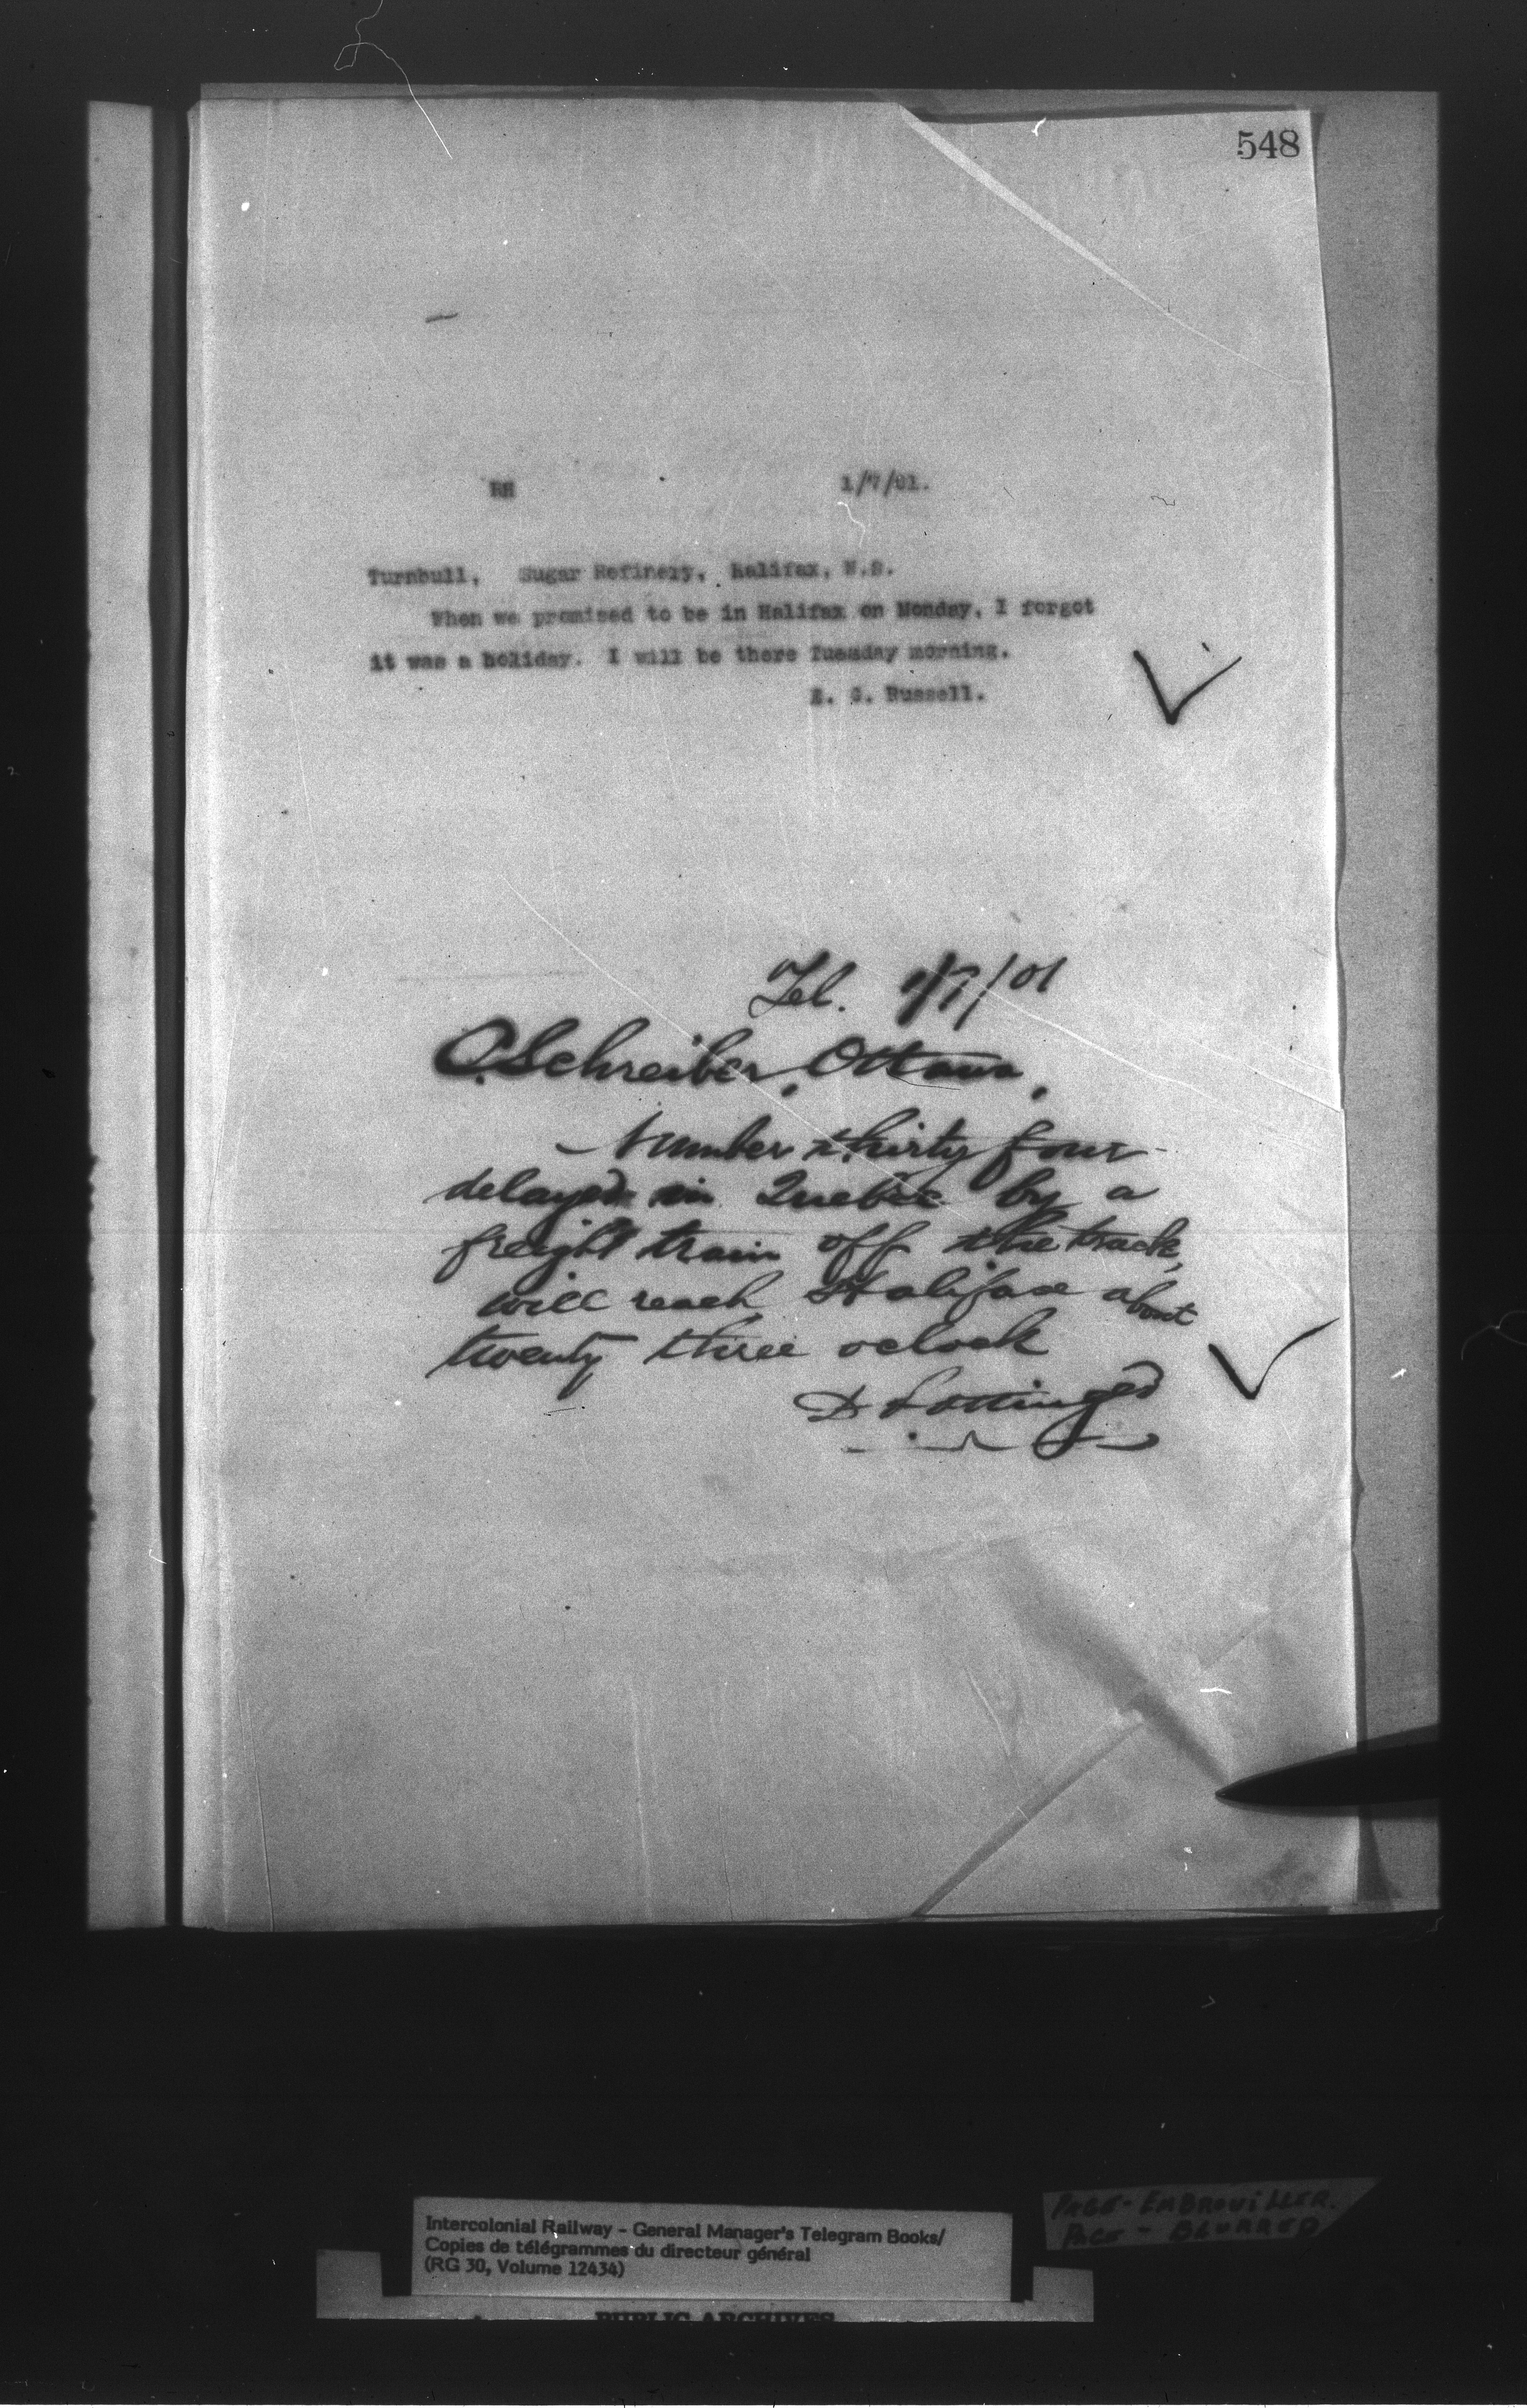 548
RH 1/7/01.
Turnbull, Sugar Refinery, Halifax, N.S.
When we promised to be in Halifax on Monday, I forgot
it was a holiday. I will be there Tuesday morning.
E. G. Russell.
Tel. 1/7/01
C Schreiber, Ottawa.
Number thirty four
delayed in Quebec by a
freight train off the track,
will reach Halifax about
twenty three oclock
D Pottinger
Intercolonial Railway - General Manager's Telegram Books/
Copies de télégrammes du directeur général
(RG 30, Volume 12434)
PUBLIC ARCHIVES
PAGE - EMBROUILLER.
PAGE - BLURRED